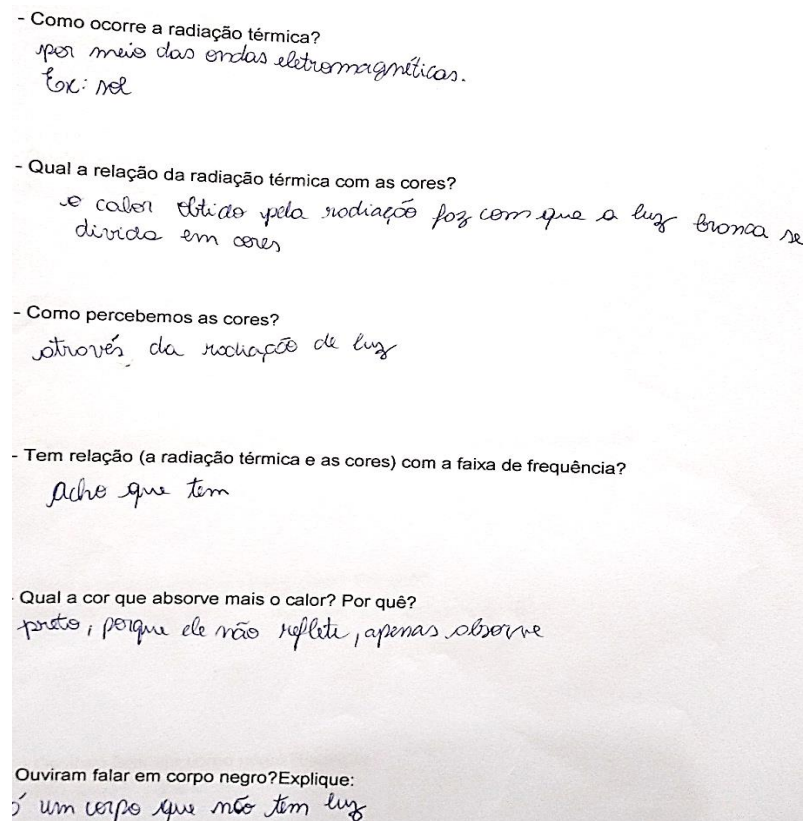 - Como ocorre a radiação térmica?
por meio das ondas eletromagnéticas.
Ex: sol
- Qual a relação da radiação térmica com as cores?
o calor obtido pela radiação faz com que a luz branca se
divida em cores
- Como percebemos as cores?
através da radiação de luz
- Tem relação (a radiação térmica e as cores) com a faixa de frequência?
acho que tem
- Qual a cor que absorve mais o calor? Por quê?
preto, porque ele não reflete, apenas absorve
Ouviram falar em corpo negro?Explique:
é um corpo que não tem luz